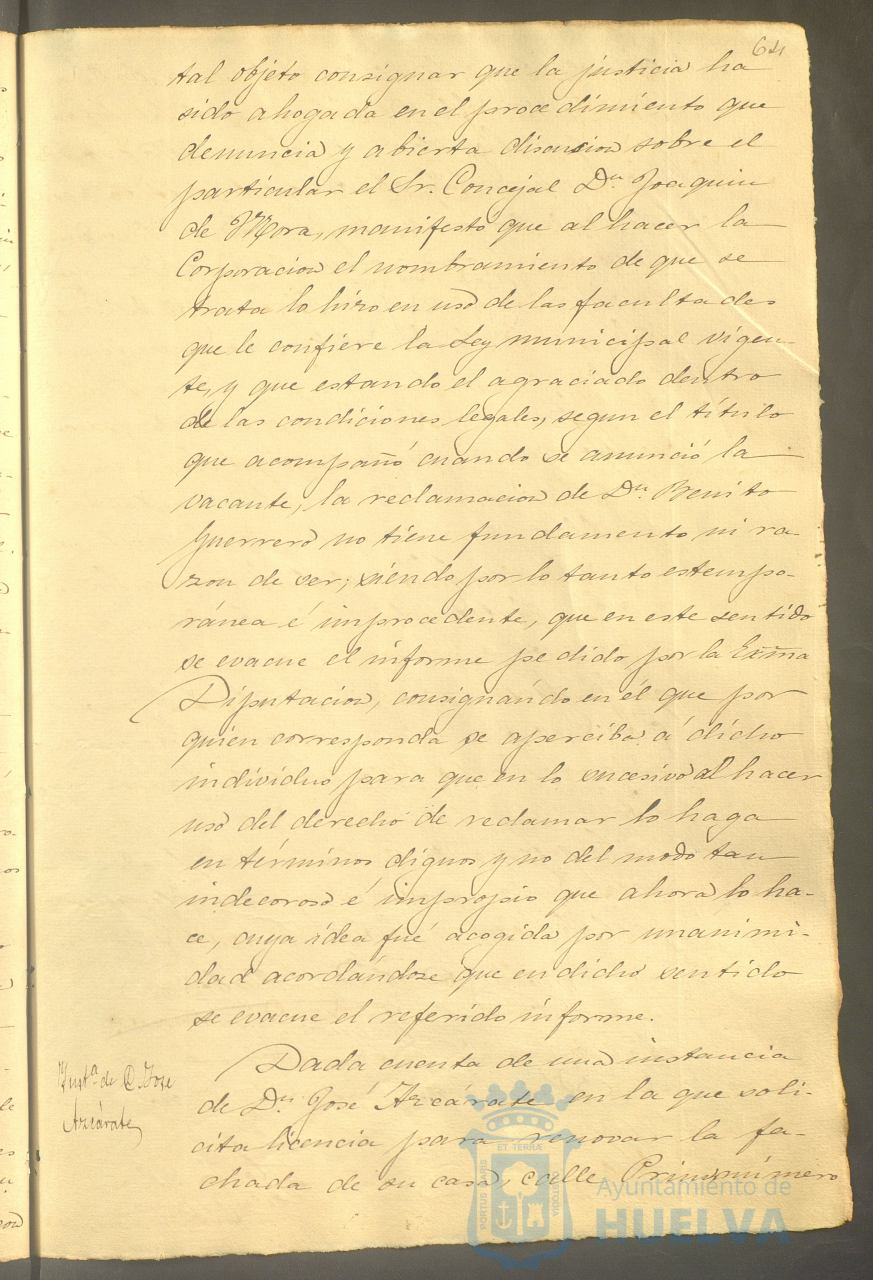 64
tal objeto consignar que la justicia ha
sido ahogada en el procedimiento que
denuncia y abierta discusion sobre el
particular el Sr. Concejal Dn. Joaquin
de Mora, manifesto que al hacer la
Corporacion el nombramiento de que se
trata lo hizo en uso de las facultades
que le confiere la Ley municipal vigen-
te, y que estando el agraciado dentro
de las condiciones legales, segun el título
que acompañó cuando se anunció la
vacante, la reclamacion de Dn. Benito
Guerrero no tiene fundamento ni ra-
zon de ser; siendo por lo tanto estempo-
ránea é improcedente, que en este sentido
se evacue el informe pedido por la Exma
Diputacion, consignando en él que por
quien corresponda se aperciba á dicho
individuo para que en lo sucesivo al hacer
uso del derecho de reclamar lo haga
en términos dignos y no del modo tan
indecoroso é impropio que ahora lo ha-
ce, cuya idea fué acogida por unanimi-
dad acordándose que en dicho sentido
se evacue el referido informe.
Insta. de D. Jose
Azcárate
Dada cuenta de una instancia
de Dn. José Azcárate en la que soli-
cita licencia para renovar la fa-
chada de su casa, calle Prim número
ET TERRÆ
PORTUS MARIS
CUSTODIA
Ayuntamiento de
HUELVA